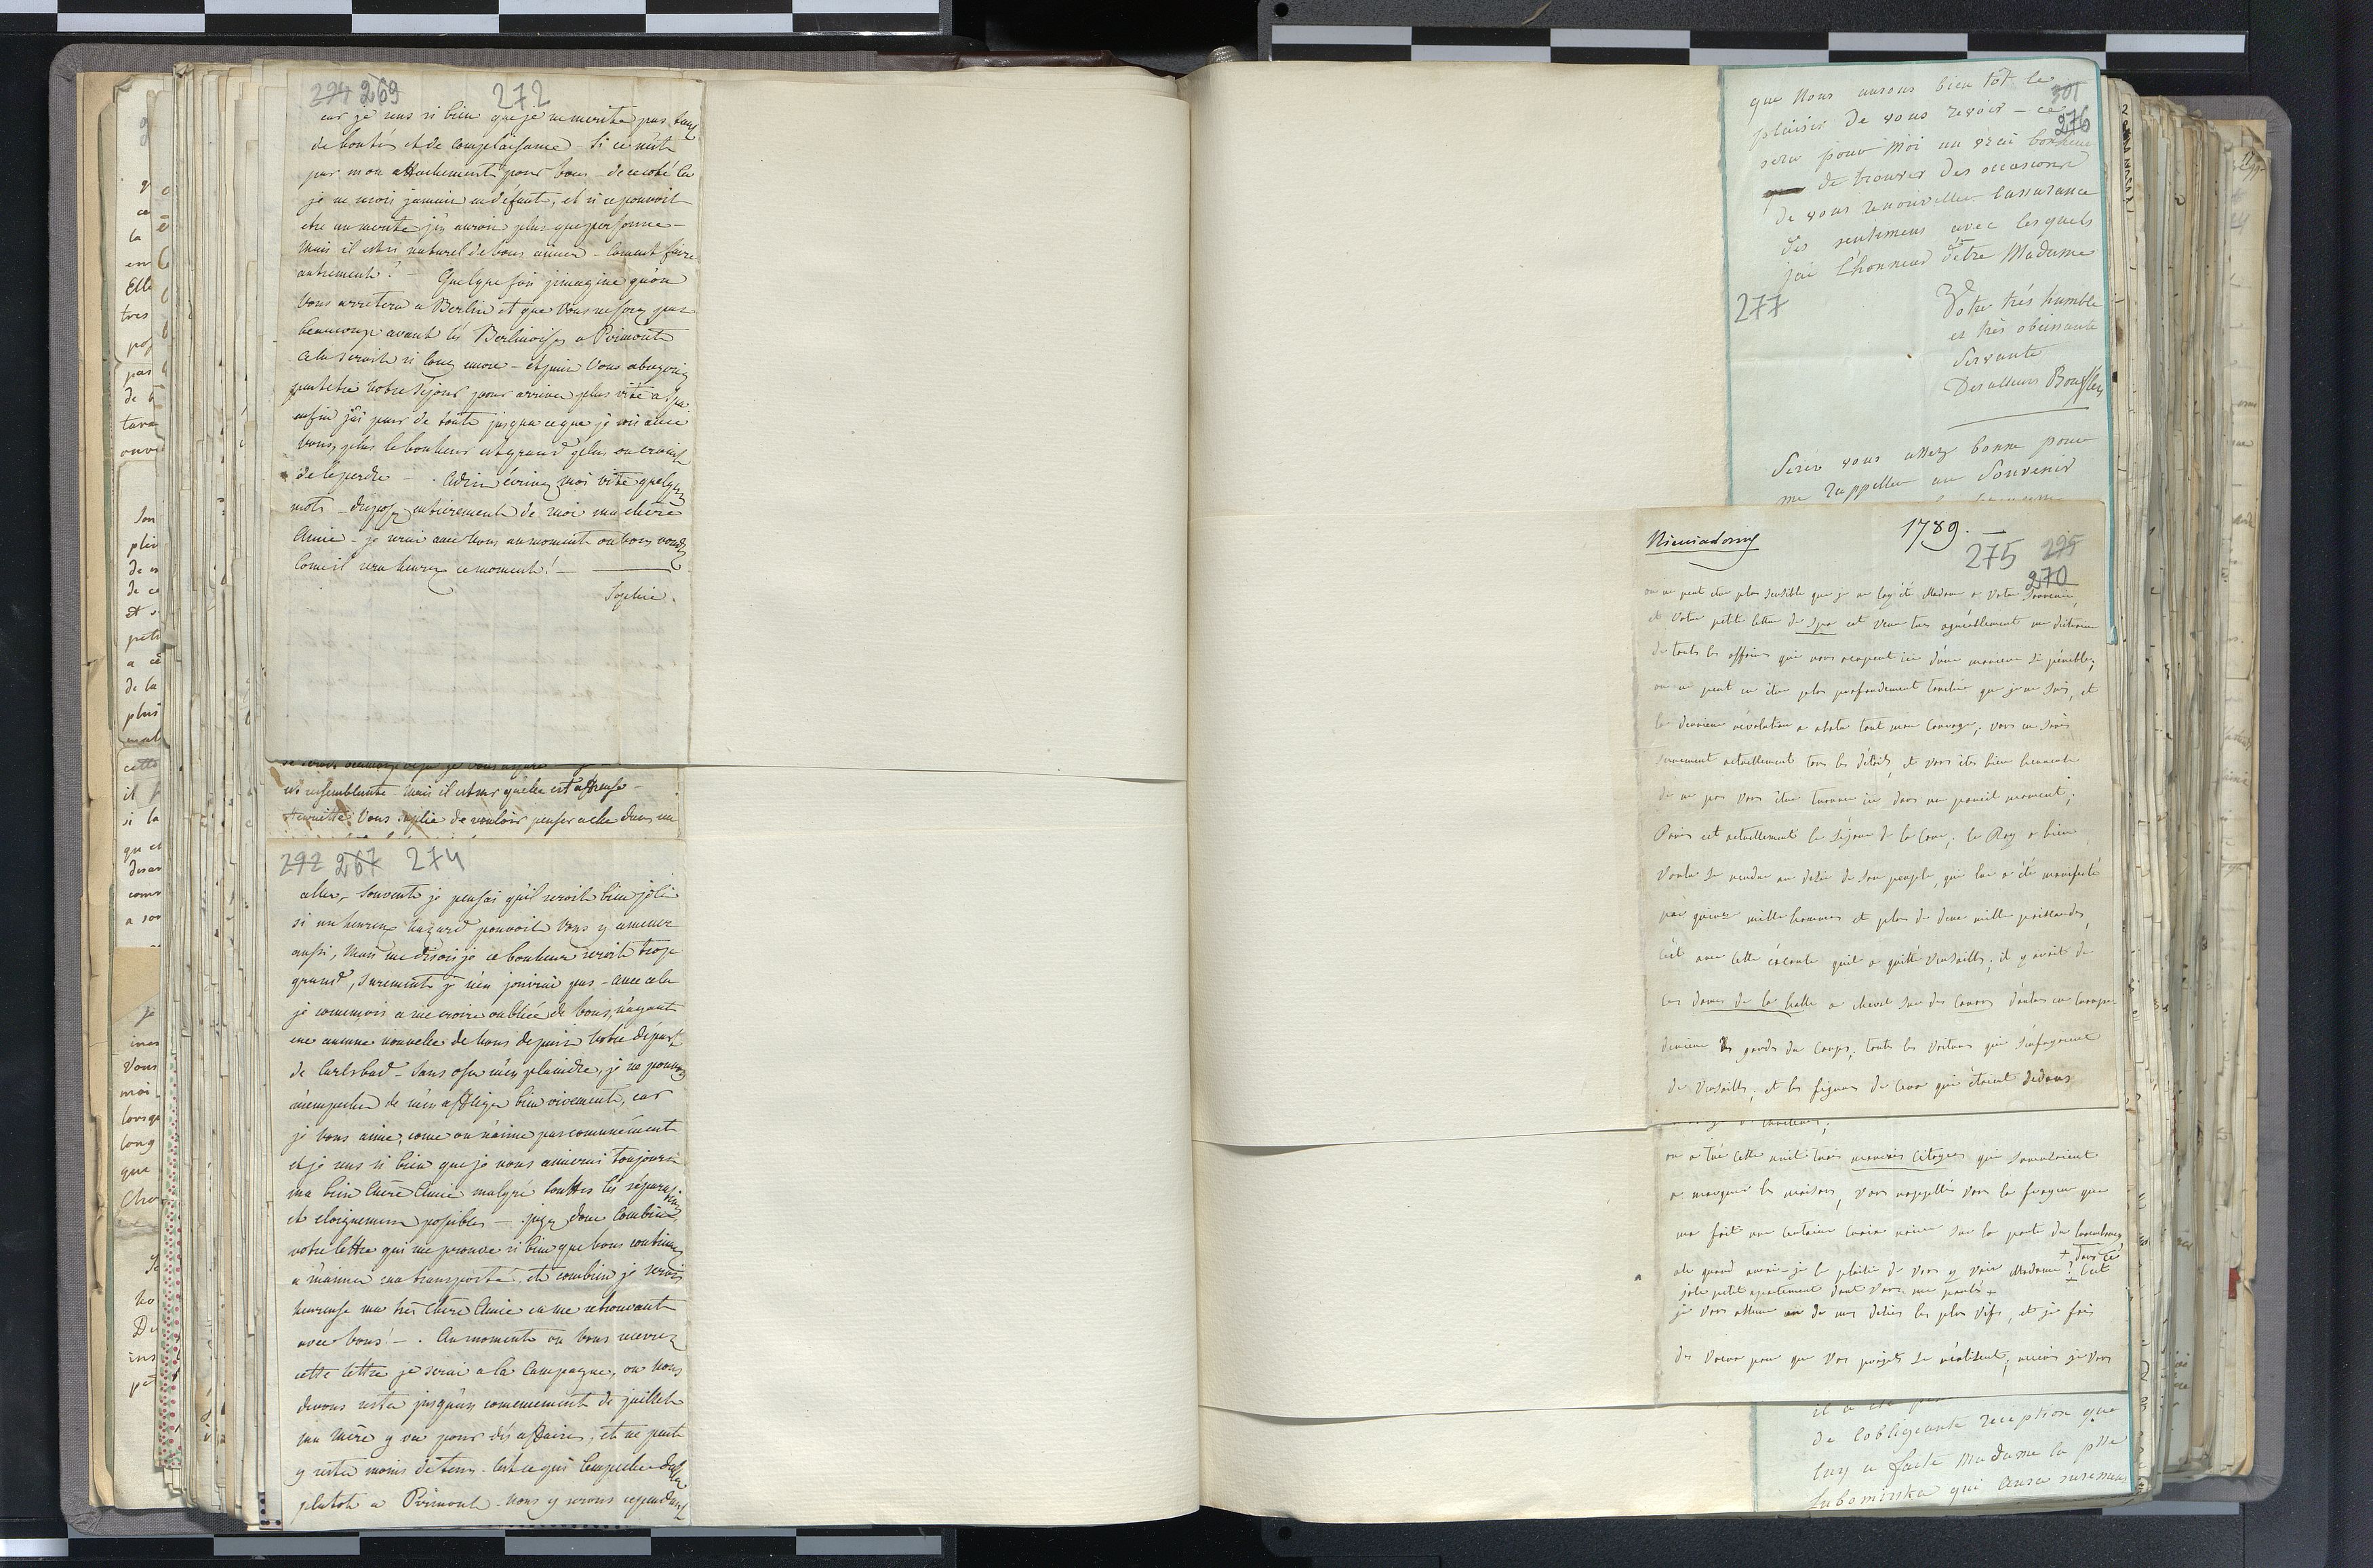 294 269 272
car je sens si bien que je ne merite pas tant
de bontés et de complaisance - Si ce n'est
par mon attachement pour vous - de ce coté la
je ne serai jamais en défaut, et si ce pouvoit
etre un merite j'en aurois plus que personne -
mais il est si naturel de vous aimer - coment faire
autrement? - Quelque fois j'imagine qu'on
vous arretera a Berlin et que vous ne serez pas
beaucoup avant les Berlinoises a Pirmont
cela seroit si long encore - et puis vous abregeriez
peutetre votre séjour pour arriver plus vite a Spa
enfin j'ai peur de tout jusqu'a ce que je sois avec
vous, plus le bonheur est grand plus on craint
de le perdre - . Adieu écrivez moi vite quelques
mots - disposez entierement de moi ma chère
Amie - je serai avec vous au moment ou vous voudrez
Come il sera heureux ce moment! -
Sophie.
ressemblante mais il est sur qu'elle est affreuse -
Henriette vous suplie de vouloir penser a elle dans un
292 267 274
aller, souvent je pensai qu'il seroit bien joli
si un heureux hazard pouvoit vous y amener
aussi, mais me disois je ce bonheur seroit trop
grand, surement je n'en jouirai pas - avec cela
je comencois a me croire oubliée de vous, n'ayant
eue aucune nouvelle de vous depuis votre départ
de Carlsbad - sans oser m'en plaindre, je ne pouvois
m'empecher de m'en affliger bien vivement, car
je vous aime, come on n'aime pas comunement
et je sens si bien que je vous aimerai toujours
ma bien chère Amie malgré touttes les séparations
et eloignemens possibles - jugez donc combien
votre lettre qui me prouve si bien que vous continuez
a m'aimer m'a transportée, et combien je serois
heureuse ma très chère Amie en me retrouvant
avec vous! - . Au moment ou vous recevrez
cette lettre je serai a la Campagne, ou nous
devons rester jusqu'au comencement de juillet
ma mère y va pour des affaires, et ne peut
y rester moins de tems - c'est ce qui l'empeche d'aller
plutot a Pirmont - nous y serons cependant
que Nous aurons bien tôt le
301
plaisir de vous revoir - ce
276
sera pour moi un vrai bonheur
de trouver des occasions
de vous renouveller l'assurance
des sentimens avec lesquels
jai l'honneur d'être Madame
277
Votre très humble
et très obeissante
Servante
Desalleurs Boufflers
Serez vous assez bonne pour
me rappeller au Souvenir
Niewiadomy
1789. -
275 295
270
on ne peut etre plus sensible que je ne l'ay été Madame a votre souvenir,
et votre petite lettre de Spa est venue tres agréablement me distraire
de touts les affaires qui nous occupent ici d'une maniere si pénible,
on ne peut en être plus profondement touchée que je ne suis, et
la derniere révolution a abatu tout mon courage; vous en saurez
surement actuellement tous les détails, et vous etes bien heureuse
de ne pas vous être trouvée ici dans un pareil moment;
Paris est actuellement le séjour de la Cour; le Roy a bien
voulu se rendre au desir de son peuple, qui lui a été manifesté
par quinze mille hommes et plus de deux mille poissardes,
c'est avec cette escorte qu'il a quitté Versailles; il y avoit de
ces dames de la halle a cheval sur des canons d'autres en croupe
derriere les gardes du Corps; toutes les voitures qui s'enfuyoient
de Versailles, et les figures de ceux qui étoient dedans
on a tué cette nuit trois mauvais Citoyens qui s'amusoient
a marquer les maisons, vous rappellés vous la frayeur que
me fait une certaine croix noire sur la porte du Luxembourg
ah quand aurai-je le plaisir de vous y voir Madame? + dans ce
joli petit apartement dont vous me parlés + c'est
je vous assure un de mes desirs les plus vifs, et je fais
des voeux pour que vos projets se réalisent;
de l'obligeante reception que
luy a faite Madame la psse
Lubomirska qui aura surement